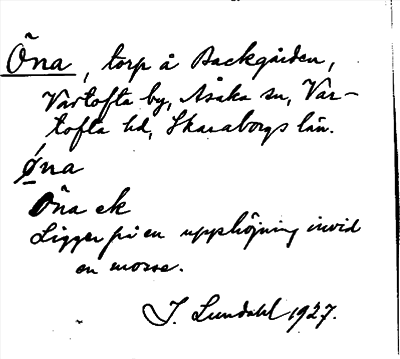 Öna, torp å Backgården,
Vartofta by, Åsaka sn, Var-
tofta hd, Skaraborgs län.
Ǿna
Öna ek
Ligger på en upphöjning invid
en mosse.
I. Lundahl 1927.